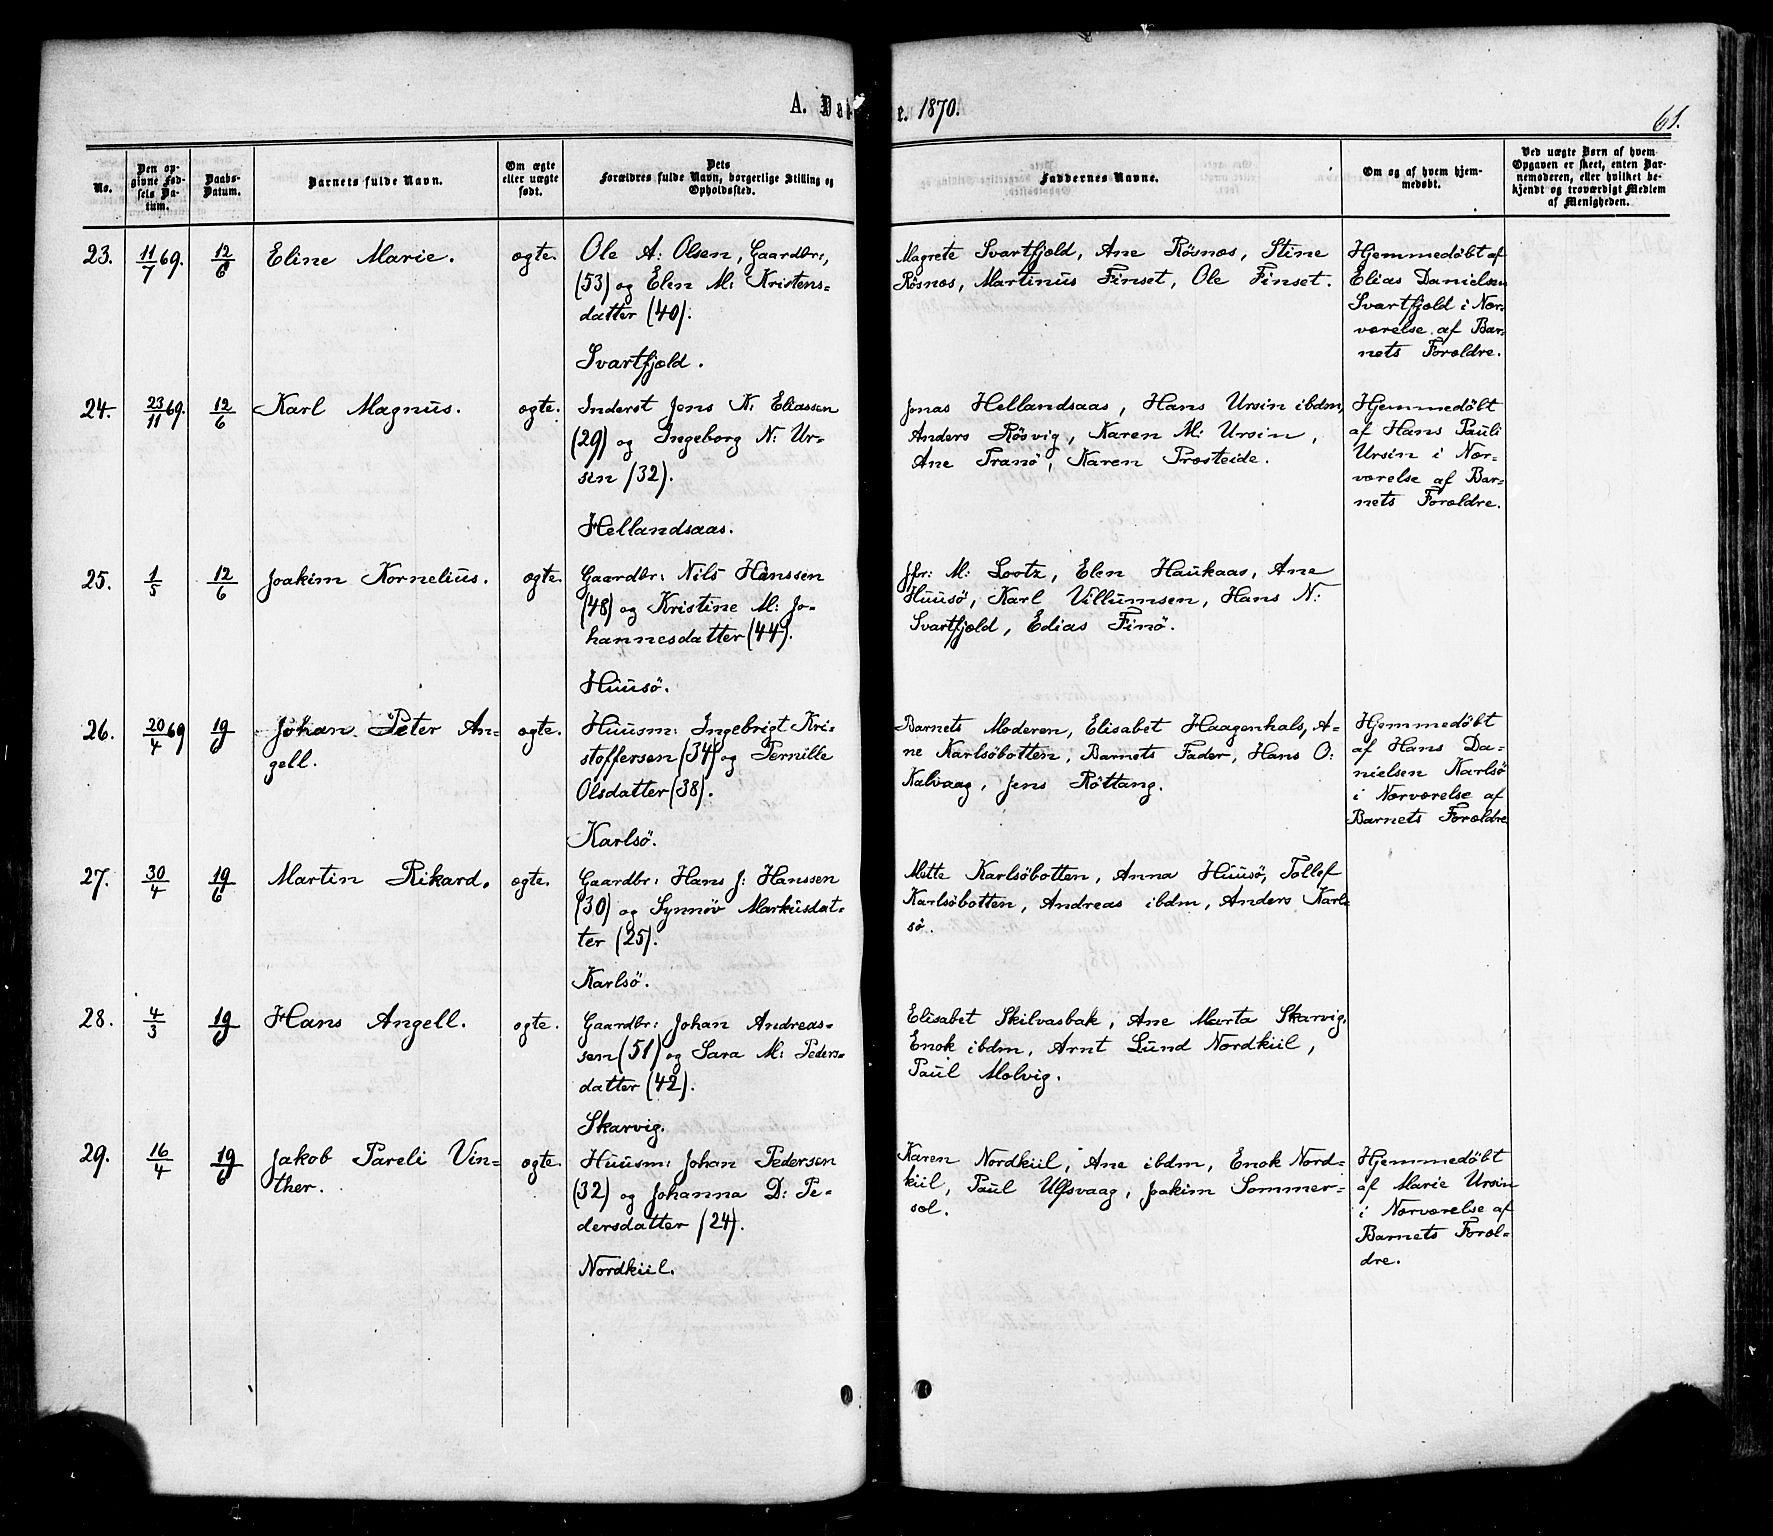 A. Da e. 1870.
61.
No.
Den opgivne Fødsels Datum.
Daabs-Datum.
Barnets fulde Navn.
Om ægte eller uægte født.
Dets Forældres fulde Navn, borgerlige Stilling og Opholdssted.
Faddernes Navne.
Om og af hvem hjemmedøbt.
Ved uægte Børn af hvem Opgaven er skeet, enten Barnemoderen, eller hvilket bekjendt og troværdigt Medlem af Menigheden.
23. 11/7 69. 12/6 Eline Marie. ægte.
Ole A: Olsen, Gaardbr:,
(53) og Elen M: Kristens-
datter (40).
Svartfjæld.
Magrete Svartfjæld, Ane Røsnæs, Stine
Røsnæs, Martinus Finset, Ole Finset.
Hjemmedøbt af
Elias Danielsen
Svartfjæld i Nær-
værelse af Bar-
nets Forældre.
24. 23/11 69. 12/6 Karl Magnus. ægte.
Inderst Jens K: Eliassen
(29) og Ingeborg N: Ur-
sin (32).
Hellandsaas.
Jonas Hellandsaas, Hans Ursin ibdm,
Anders Røsvig, Karen M: Ursin,
Ane Tranø, Karen Præsteide.
Hjemmedøbt
af Hans Pauli
Ursin i Nær-
værelse af Bar-
nets Forældre.
25. 1/5 12/6 Joakim Kornelius. ægte.
Gaardbr: Nils Hanssen
(48) og Kristine M: Jo-
hannesdatter (44).
Huusø.
Jfr: M: Lootz, Elen Haukaas, Ane
Huusø, Karl Villumsen, Hans N:
Svartfjæld, Edias Finø.
26. 20/4 69 19/6 Johan Peter An-
gell. ægte.
Huusm: Ingebrigt Kri-
stoffersen (34) og Pernille
Olsdatter (38).
Karlsø.
Barnets Moderen, Elisabet Haagenhals, A-
ne Karlsøbotten, Barnets Fader, Hans O:
Kalvaag, Jens Røttang.
Hjemmedøbt
af Hans Da-
nielsen Karlsø
i Nærværelse af
Barnets Forældre
27. 30/4 19/6 Martin Rikard. ægte.
Gaardbr: Hans J: Hanssen
(30) og Synnøv Markusdat-
ter (25).
Karlsø.
Mette Karlsøbotten, Anna Huusø, Tollef
Karlsøbotten, Andreas ibdm, Anders Karl-
sø.
28. 4/3 19/6 Hans Angell. ægte.
Gaardbr: Johan Andreas-
sen (51) og Sara M: Peders-
datter (42).
Skarvig.
Elisabet Skilvasbak, Ane Marta Skarvig,
Enok ibdm, Arnt Lund Nordkiil,
Paul Molvig.
29. 16/4 19/6 Jakob Pareli Vin-
ther. ægte.
Huusm: Johan Pedersen
(32) og Johanna D: Pe-
dersdatter (24).
Nordkiil.
Karen Nordkiil, Ane ibdm, Enok Nord-
kiil, Paul Ulfsvaag, Joakim Sommer-
sel.
Hjemmedøbt
af Marie Ursin
i Nærværelse af
Barnets Foræl-
dre.